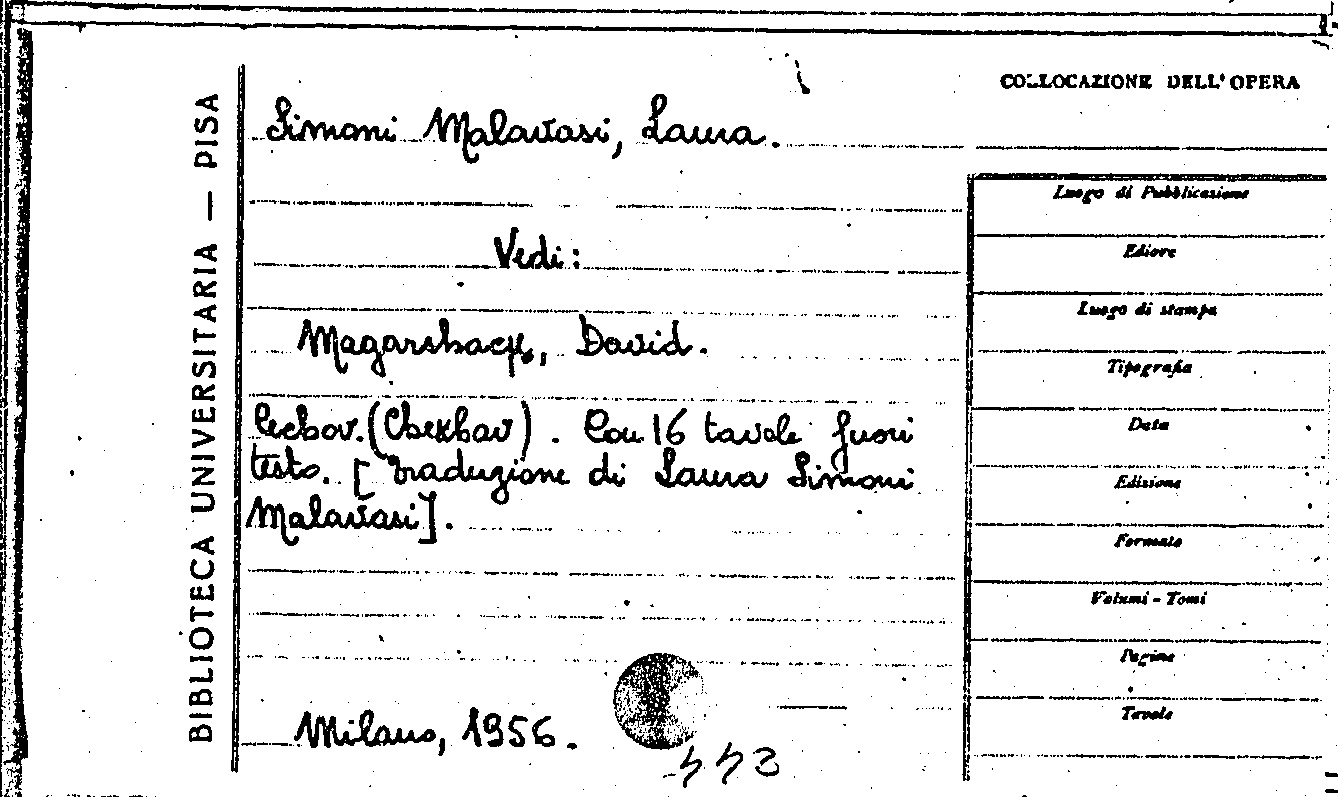 BIBLIOTECA UNIVERSITARIA — PISA
Simoni Malavasi, Laura.
Vedi:
Magarshack, David.
Cechov. (Chekhav). Con 16 tavole fuori
testo. [Traduzione di Laura Simoni
Malavasi].
Milano, 1956.
COLLOCAZIONE DELL'OPERA
Luogo di Pubblicazione
Editore
Luogo di stampa
Tipografia
Data
Edizione
Formato
Volumi - Tomi
Pagine
Tavole